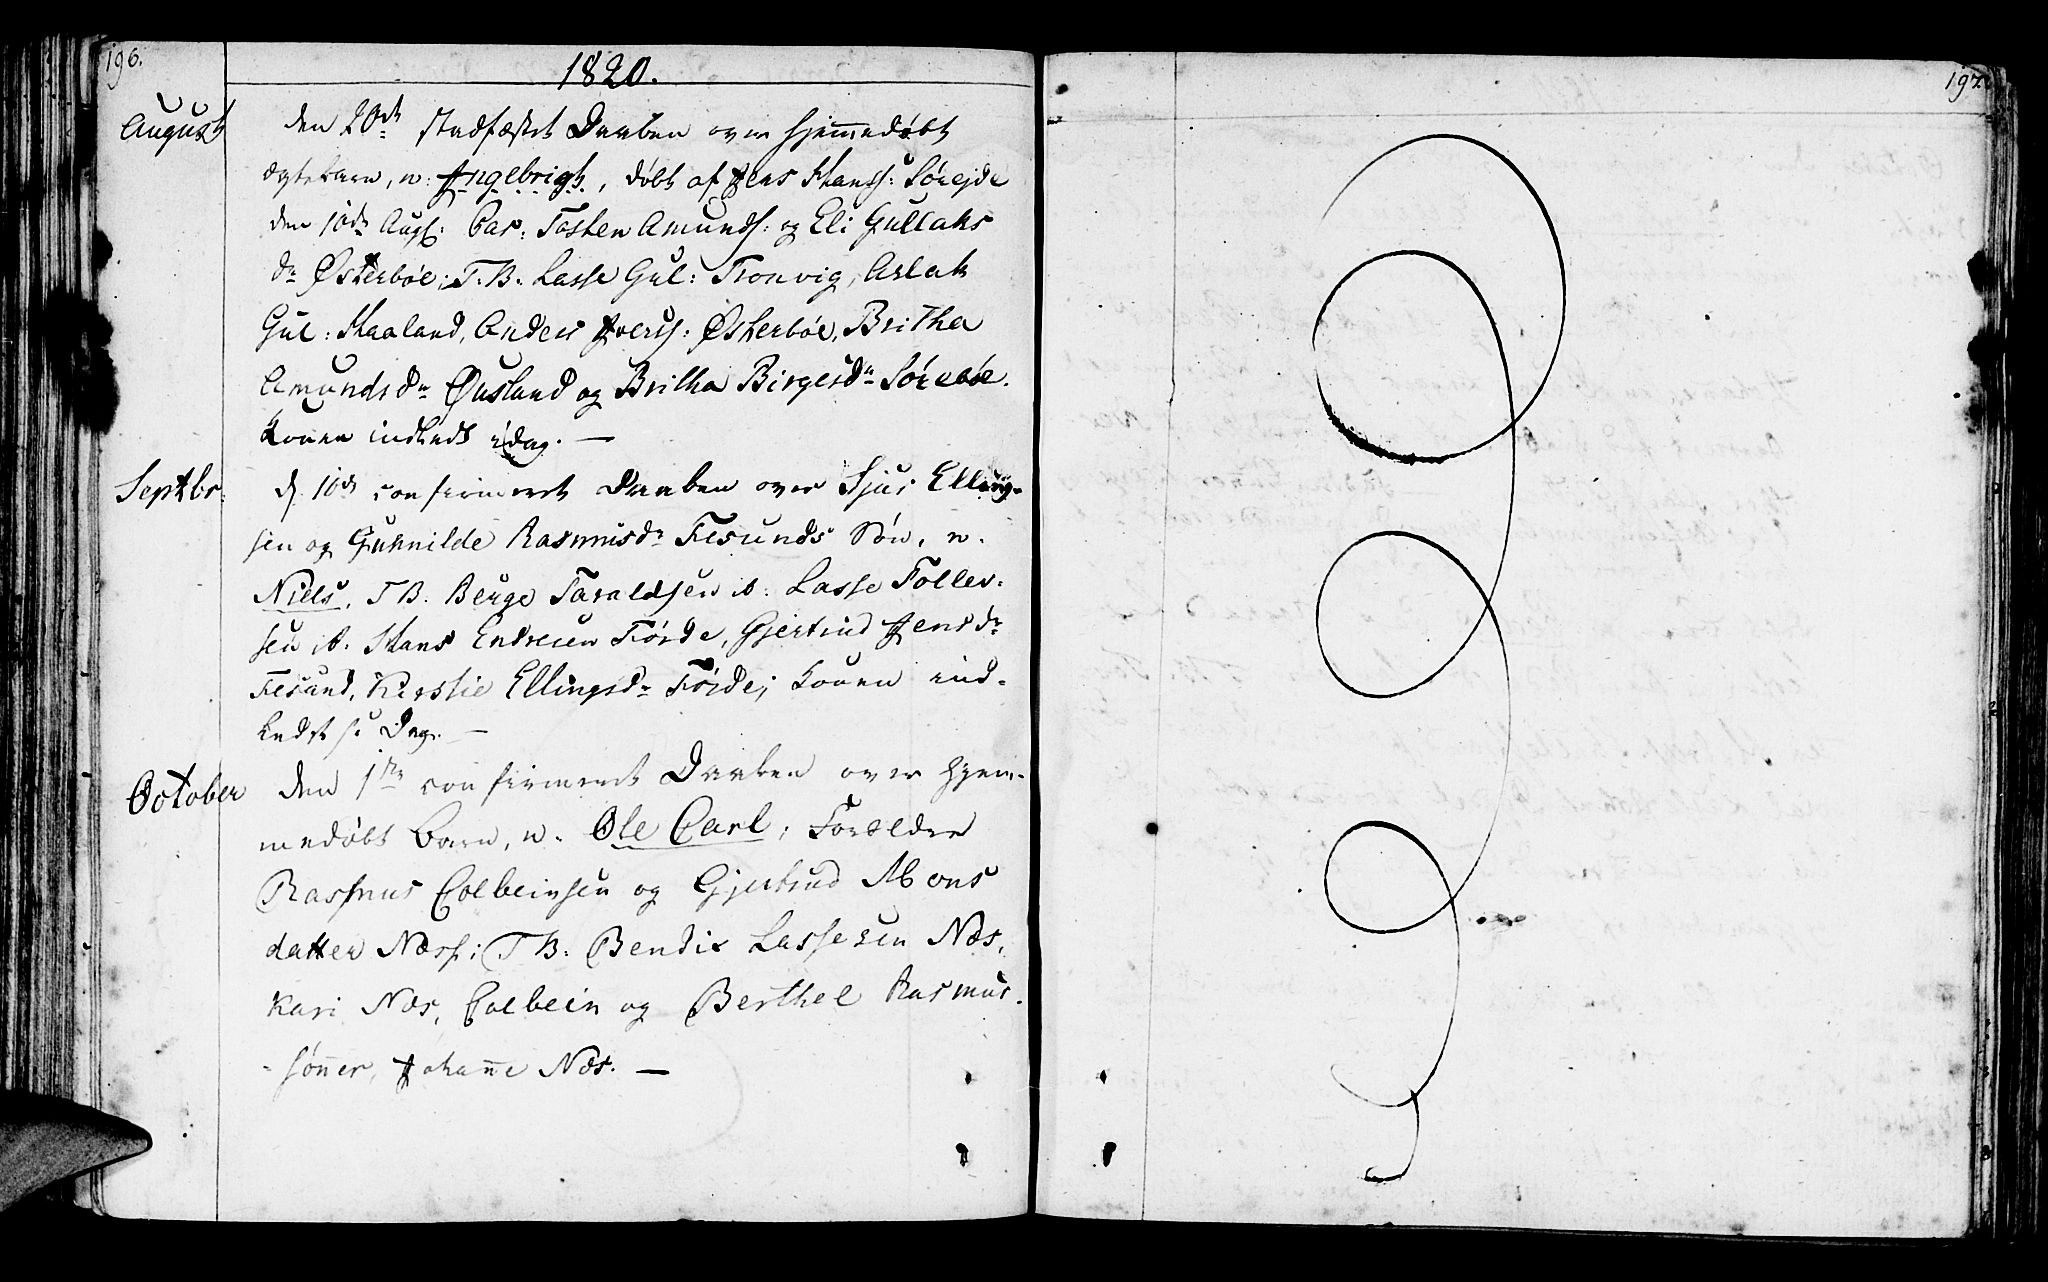 196.
1820.
August
den 20de stadfæstet Daaben over hjemmedøbt
ægte barn, n: Ingebrigt, døbt af Jens Hanss: Sørejde
den 10de Augs: Par: Tosten Amunds: og Eli Gullaks
dr Østerbøe; T.B. Lasse Gul: Tronvig, Aslak
Gul: Haaland, Anders Ivers: Østerbøe, Britha
Amundsdr Øusland og Britha Birgesdr Sørebøe.
Konen indledt idag. —
Septbr:
d 10de confirmeret Daaben over Sjur Elling-
sen og Gunnilde Rasmusdr Tresunds Søn, n.
Niels, T B. Berge Taraldsen ib: Lasse Toller-
sen ib. Hans Endresen Førde, Gjertrud Jensdr
Tresund, Kirstie Ellingsdr Førde; Konen ind-
ledt s: Dag. —
October
den 1te confirmeret Daaben over hjem-
medøbt Barn, n. Ole Carl; Forældre
Rasmus Colbeinsen og Gjertrud Mons
datter Næss; T B: Bendix Lassesen Næs,
Kari Næs, Colbein og Berthel Rasmus-
-sønner, Johanne Næs. —
197.